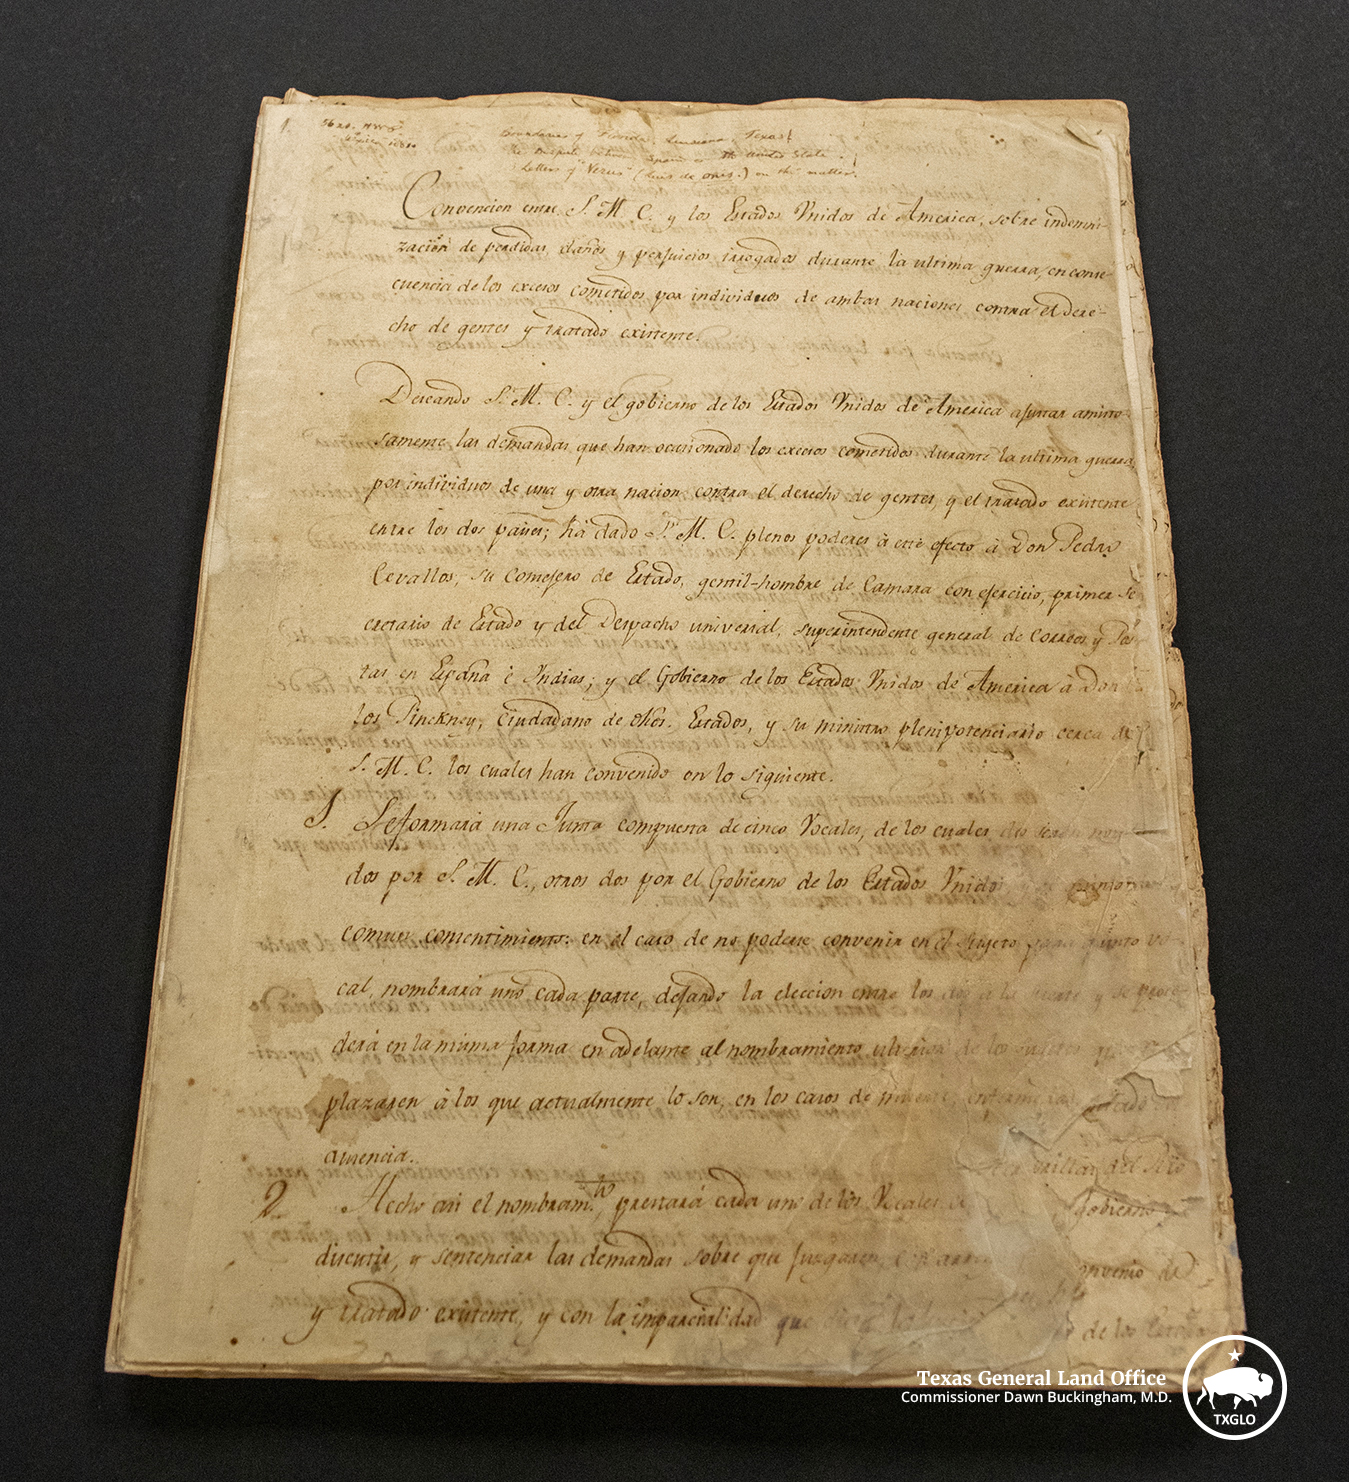 1.
Boundaries of Florida, Louisiana, Texas
in dispute between Spain & the United States.
Letters of "Verus" (Luis de Onis.) on the matter.
Convencion entre S. M. C. y los Estados Vnidos de America, sobre indemni-
zación de perdidas, daños y perjuicios irrogados durante la ultima guerra, en conse-
cuencia de los excesos cometidos por individuos de ambas naciones contra el dere-
cho de gentes y tratado existente.
Deseando S. M. C. y el gobierno de los Estados Vnidos de America ajustar amisto-
samente las demandas que han ocasionado los excesos cometidos durante la ultima guerra,
por individuos de una y otra nacion contra el derecho de gentes, y el tratado existente
entre los dos paises; há dado S. M. C. plenos poderes à este efecto à Don Pedro
Cevallos, su Consejero de Estado, gentil-hombre de Camara con ejercicio, primer Se-
cretario de Estado y del Despacho universal, superintendente general de correos y Pos-
tas en España é Yndias; y el Gobierno de los Estados Vnidos de America à Don
los Pinckney, Ciudadano de dhos. Estados, y su ministro plenipotenciario cerca de
S. M. C. los cuales han convenido en lo siguiente.
1. Se formará una Junta compuesta de cinco Vocales, de los cuales dos serán
dos por S. M. C., otros dos por el Gobierno de los Estados Vnidos
comun consentimiento: en el caso de no poderse convenir en el Sugeto para quinto vo-
cal, nombrará uno cada parte, dejando la eleccion entre los dos à la suerte y se proce-
derá en la misma forma en adelante al nombramiento ulterior de los sugetos que
plazaren à los que actualmente lo son, en los casos de muerte, enfermedad,
ausencia.
2. Hecho asi el nombram.to, prestará cada uno de los Vocales
gobierno
discutir, y sentenciar las demandas sobre que juzgaren, convenio de
y tratado existente, y con la imparcialidad que
de los Estados
Texas General Land Office
Commissioner Dawn Buckingham, M.D.
TXGLO